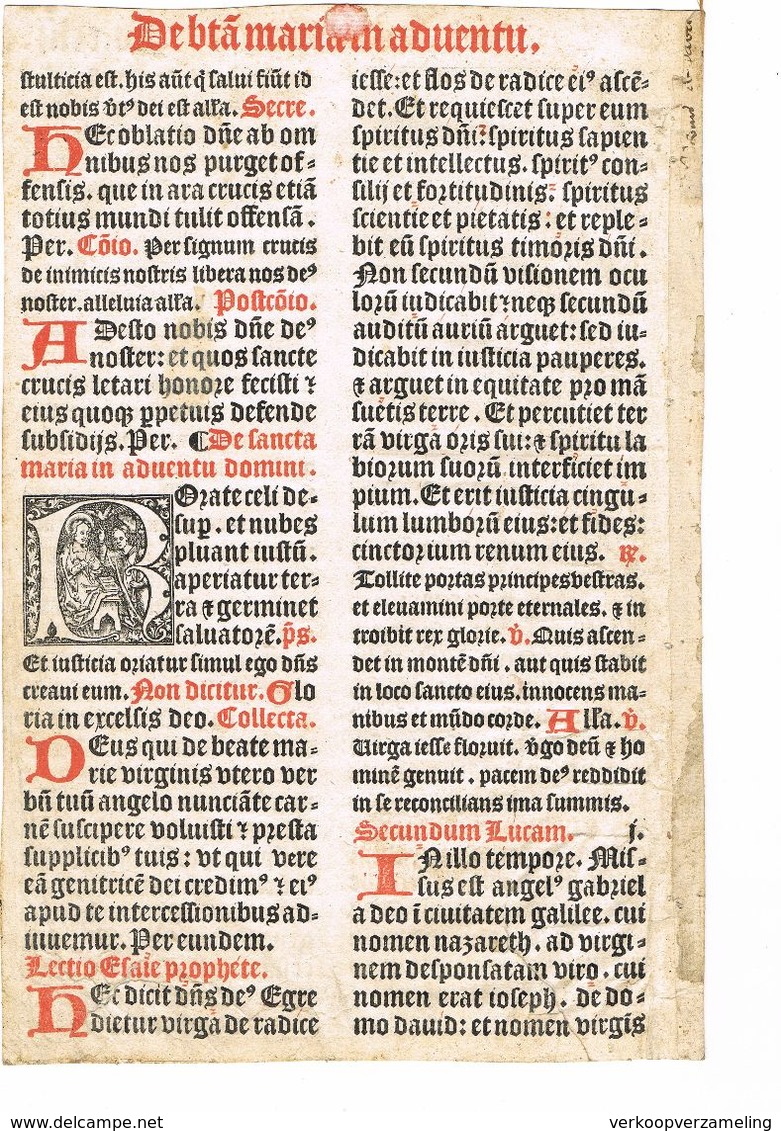 De btā maria in aduentu.
stulticia est. his aūt q̄ salui fiūt id
est nobis v̄tꝰ dei est alľa. Secre.
HEc oblatio dn̄e ab om
nibus nos purget of-
fensis. que in ara crucis etiā
totius mundi tulit offensā.
Per. Cōio. Per signum crucis
de inimicis nostris libera nos deꝰ
noster. alleluia alľa. Postcōio.
ADesto nobis dn̄e deꝰ
noster: et quos sancte
crucis letari honore fecisti ⁊
eius quoqꝫ ꝑpetuis defende
subsidijs. Per. ¶ De sancta
maria in aduentu domini.
ROrate celi de-
suꝑ. et nubes
pluant iustū.
aperiatur ter-
ra ⁊ germinet
saluatorē. p̄s.
Et iusticia oriatur simul ego dn̄s
creaui eum. Non dicitur. Glo
ria in excelsis deo. Collecta.
DEus qui de beate ma-
rie virginis vtero ver
bū tuū angelo nunciāte car-
nē suscipere voluisti ⁊ presta
supplicibꝰ tuis: vt qui vere
eā genitricē dei credimꝰ ⁊ eiꝰ
apud te intercessionibus ad-
iuuemur. Per eundem.
Lectio Esaie prophete.
HEc dicit dn̄s deꝰ Egre
dietur virga de radice
iesse: et flos de radice eiꝰ ascē-
det. Et requiescet super eum
spiritus dn̄i: spiritus sapien
tie et intellectus. spiritꝰ con-
silij et fortitudinis: spiritus
scientie et pietatis: et reple-
bit eū spiritus timoris dn̄i.
Non secundū visionem ocu
lorū iudicabit ⁊ neqꝫ secundū
auditū auriū arguet: sed iu-
dicabit in iusticia pauperes.
⁊ arguet in equitate pro mā
suetis terre. Et percutiet ter
rā virga oris sui: ⁊ spiritu la
biorum suorū interficiet im
pium. Et erit iusticia cingu-
lum lumborū eius: et fides:
cinctorium renum eius. ℞.
Tollite portas principes vestras.
et eleuamini porte eternales. ⁊ in
troibit rex glorie. ℣. Quis ascen-
det in montē dn̄i. aut quis stabit
in loco sancto eius. innocens ma-
nibus et mūdo corde. Alľa. ℣.
Uirga iesse floruit. v̄go deū ⁊ ho
minē genuit. pacem deꝰ reddidit
in se reconcilians ima summis.
Secundum Lucam. j.
IN illo tempore. Mis-
sus est angelꝰ gabriel
a deo ī ciuitatem galilee. cui
nomen nazareth. ad virgi-
nem desponsatam viro. cui
nomen erat ioseph. de do-
mo dauid: et nomen virgīs
delcampe.net
verkoopverzameling